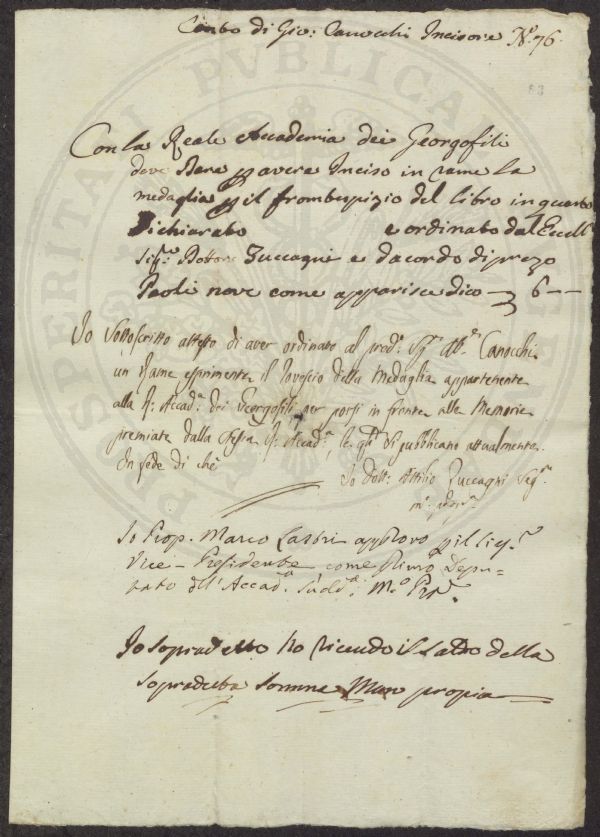 Conto di Gio: Canocchi Incisore N.º 76
Con la Reale Accademia dei Georgofili
deve Dare p avere Inciso in rame la
medaglia p il frontespizio del libro in quarto
Dichiarato e ordinato dal Eccell.
Sig.re Dottore Zuccagni e dacordo di prezo
Paoli nove come apparisce dico — 6 —
Io Sottoscritto attesto di aver ordinato al pred.º Sig.re Ab.e Canocchi
un Rame esprimente il Rovescio della Medaglia appartenente
alla R. Accad.a dei Georgofili per porsi in fronte alle Memorie
premiate dalla stessa R. Accad.a, le q.li si pubblicano attualmente.
In fede di che
Io Dott. Attilio Zuccagni Seg.
m. prop.
Io Prop. Marco Lastri approvo p il Sig.re
Vice-Presidente come Depu-
tato dell'Accad.a Sudd.a M.º Pr.
Io sopradetto ho ricevuto il saldo della
sopradetta somma Man propia
PROSPERITATI PUBLICAE AUGENDAE